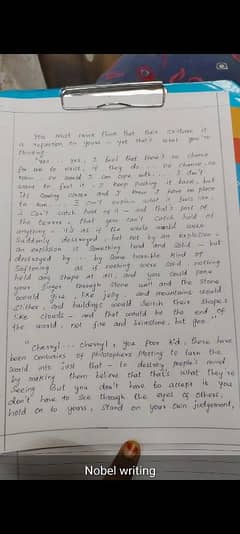 You must know that their existence is
a reparation to yours - yet that's what you're
thinking.
"Yes... yes, I feel that there's no chance
for me to exist, if they do... no chance, no
room, no world I can cope with... I don't
want to feel it - I keep pushing it back, but
its coming closer and I know I have no place
to run... I can't explain what it feels like,
I can't catch hold of it - and that's part of
the terror, that you can't catch hold of
anything - it's as if the whole world were
suddenly destroyed, but not by an explosion -
an explosion is something hard and solid - but
destroyed by... by some horrible kind of
softening as if nothing were solid, nothing
held any shape at all, and you could poke
your finger through stone wall and the stone
would give, like jelly, and mountains would
slither, and buildings would switch their shapes
like clouds - and that would be the end of
the world, not fire and brimstone, but goo."
"Cherryl... Cherryl, you poor kid, there have
been centuries of philosophers plotting to turn the
world into just that - to destroy people's mind
by making them believe that that's what they're
seeing. But you don't have to accept it. You
don't have to see through the eyes of others,
hold on to yours, stand on your own judgement,
Nobel writing